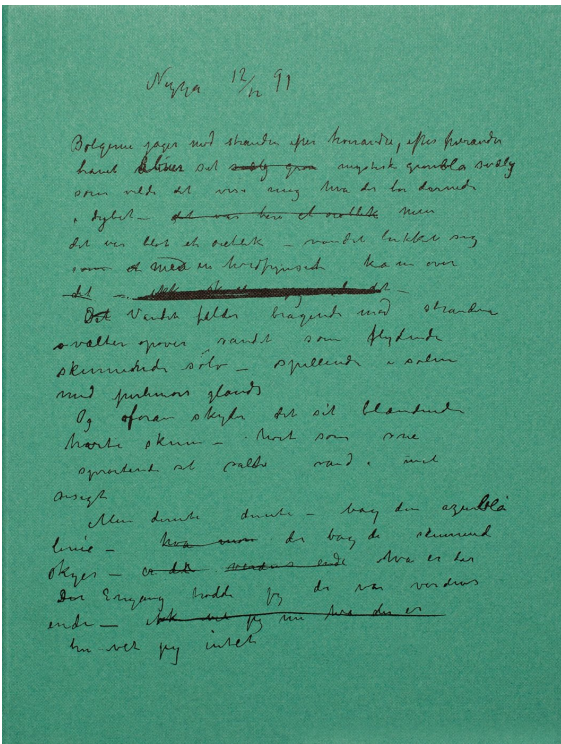 Nizza 12/12 91
Bølgerne jager mod stranden efter hverandre, efter hverandre
havet bliver sit mystisk grønblå svælg
som vilde det vise mig hva der bor dernede
i dybet – det var bare et øieblik men
det var blot et øieblik – vandet lukker sig
med en hvid kam over
det –
Det Vandet falder bragende mod stranden
vælter opover sandt som flydende
skummende sølv – spillende i solen
med perlemors glands
Og oforan skyder det sit blændende
hvite skum – hvit som sne
sprøitende sit salte vand i mit
ansigt
Men derute derute – bag den azurblå
linie – der bag de skinnende
skyer – hva er der
Der Engang trodde jeg der var verdens
ende – hva der er
nu vet jeg intet